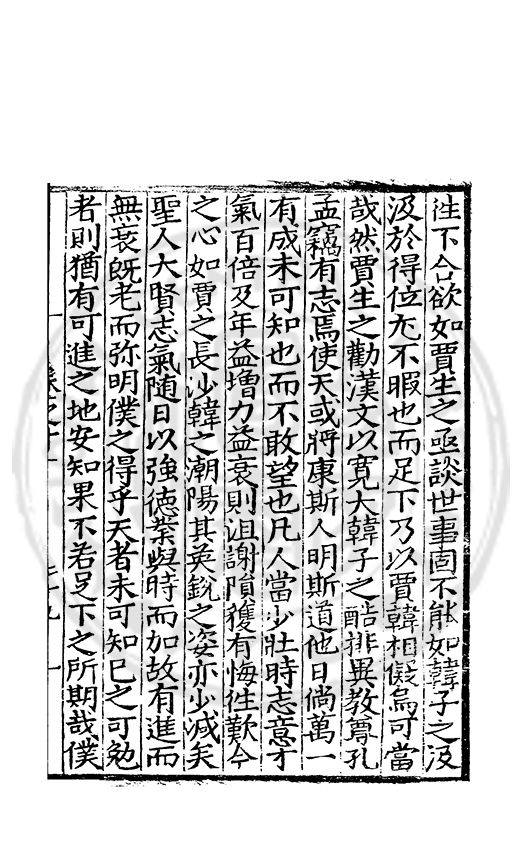 徃下合欲如賈生之亟談世事固不能如韓子之汲
汲於得位尤不暇也而足下乃以賈韓相儗烏可當
哉然賈生之勸漢文以寛大韓子之酷排異教尊孔
孟竊有志焉使天或將康斯人明斯道他日倘萬一
有成未可知也而不敢望也凡人當少壯時志意才
氣百倍及年益增力益衰則沮謝隕獲有悔徃歎今
之心如賈之長沙韓之潮陽其英銳之姿亦少減矣
聖人大賢志氣随日以強徳業與時而加故有進而
無衰既老而弥明僕之得乎天者未可知已之可勉
者則猶有可進之地安知果不若足下之所期哉僕
卷之十一
三十九